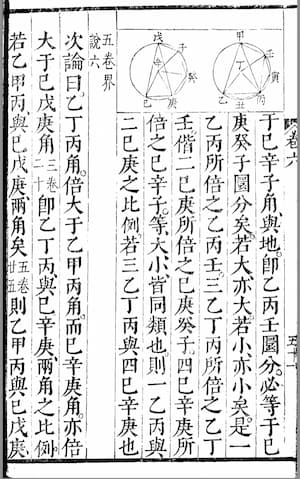 卷六
五十一
甲
壬
寅
丁
乙
丑
丙
戊
子
辛
癸
己
庚
于己辛子角與地卽乙丙壬圜分必等于己
庚癸子圜分矣若大亦大若小亦小矣是一
乙丙所倍之乙丙壬三乙丁丙所倍之乙丁
壬偕二己庚所倍之己庚癸子四己辛庚所
倍之己辛子等大小皆同類也則一乙丙與
二己庚之比例若三乙丁丙與四己辛庚也
五卷界
說六
次論曰乙丁丙角倍大于乙甲丙角而己辛庚角亦倍
大于己戊庚角三卷二十卽乙丁丙與己辛庚兩角之比例
若乙甲丙與己戊庚兩角矣五卷十五則乙甲丙與己戊庚